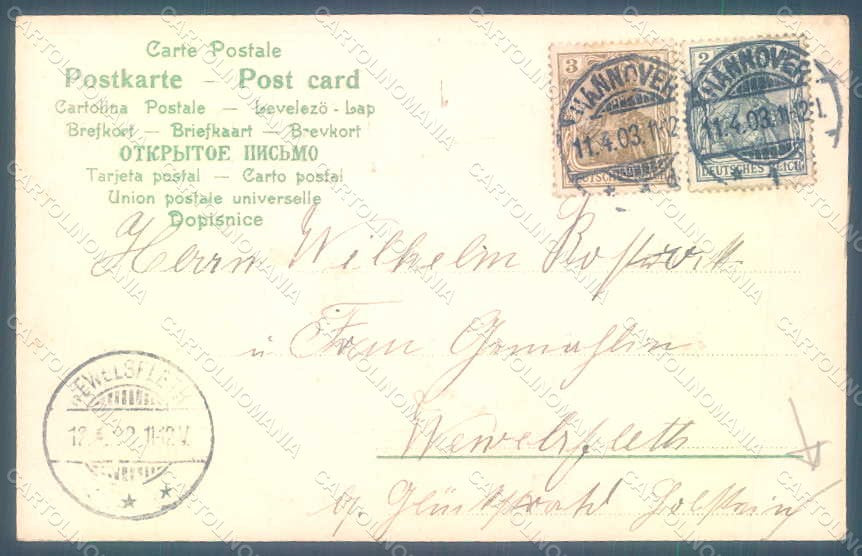 Carte Postale
Postkarte – Post card
Cartolina Postale – Levelezö - Lap
Brefkort – Briefkaart – Brevkort
ОТКРЫТОЕ ПИСЬМО
Tarjeta postal – Carto postal
Union postale universelle
Dopisnice
3
2
HANNOVER
11.4.03.11-12V.
HANNOVER
11.4.03.11-12V.
DEUTSCHES REICH
DEUTSCHES REICH
Herrn Wilhelm
u Frau Gemahlin
Wewelsfleth
b/ Glückstadt Holstein
WEWELSFLETH
12.4.03.11-12V.
CARTOLINOMANIA